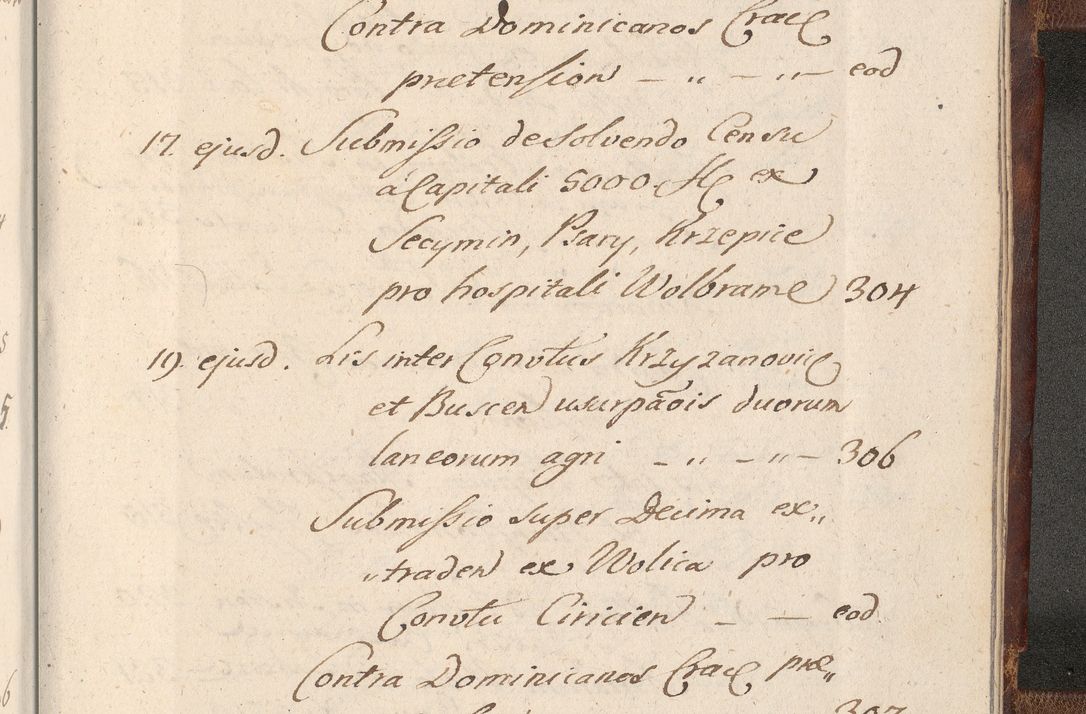 Contra Dominicanos Crac
pretension — „ — „ — eod
17. ejusd. Submissio de Solvendo Censu
a Capitali 5000 ex
Secymin, Psary, Krzepice
pro hospitali Wolbrame 304
19. ejusd. Lis inter Convtus Krzyzanovic
et Buscen usurpaois duorum
laneorum agri — „ — „ — 306
Submissio super Decima ex„
„traden ex Wolica pro
Convtu Ciricien — — eod.
Contra Dominicanos Crac præ„
307